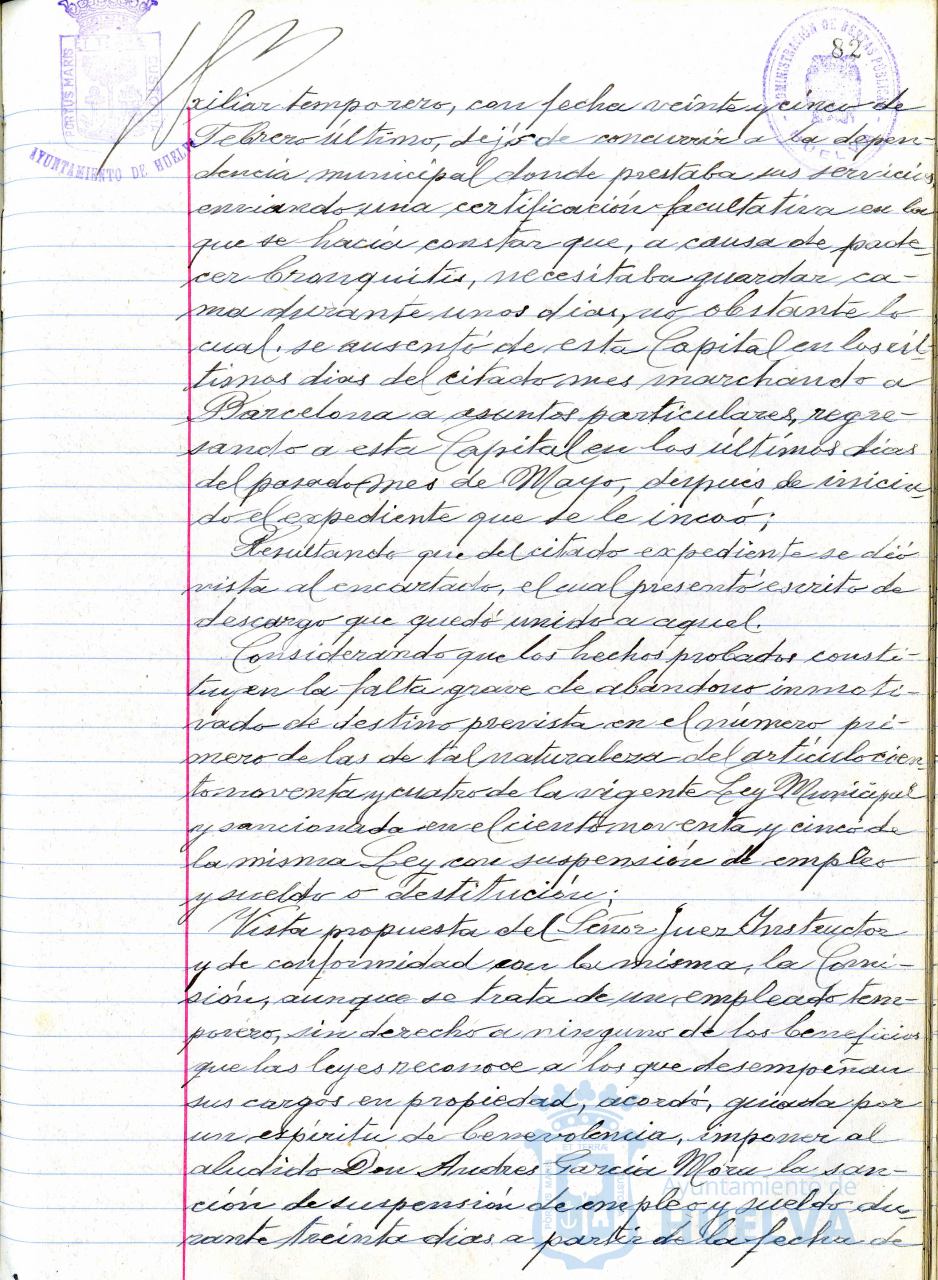 82
PORTUS MARIS
CUSTODIA
AYUNTAMIENTO DE HUELVA
ADMINISTRACIÓN DE RENTAS PÚBLICAS
HUELVA
xiliar temporero, con fecha veinte y cinco de
Febrero último, dejó de concurrir a la depen-
dencia municipal donde prestaba sus servicios,
enviando una certificación facultativa en la
que se hacía constar que, a causa de pade-
cer bronquitis, necesitaba guardar ca-
ma durante unos dias, no obstante lo
cual, se ausentó de esta Capital en los úl-
timos dias del citado mes marchando a
Barcelona a asuntos particulares, regre-
sando a esta Capital en los últimos dias
del pasado mes de Mayo, después de inicia-
do el expediente que se le incoó;
Resultando que del citado expediente se dió
vista al encartado, el cual presentó escrito de
descargo que quedó unido a aquel.
Considerando que los hechos probados consti-
tuyen la falta grave de abandono inmoti-
vado de destino prevista en el número pri-
mero de las de tal naturaleza del artículo cien-
to noventa y cuatro de la vigente Ley Municipal
y sancionada en el ciento noventa y cinco de
la misma Ley con suspensión de empleo
y sueldo o destitución;
Vista propuesta del Señor Juez Instructor
y de conformidad con la misma, la Comi-
sión, aunque se trata de un empleado tem-
porero, sin derecho a ninguno de los beneficios
que las leyes reconoce a los que desempeñan
sus cargos en propiedad, acordó, guiada por
un espíritu de benevolencia, imponer al
aludido Don Andres García Mora la san-
ción de suspensión de empleo y sueldo du-
rante treinta dias a partir de la fecha de
Ayuntamiento de
HUELVA